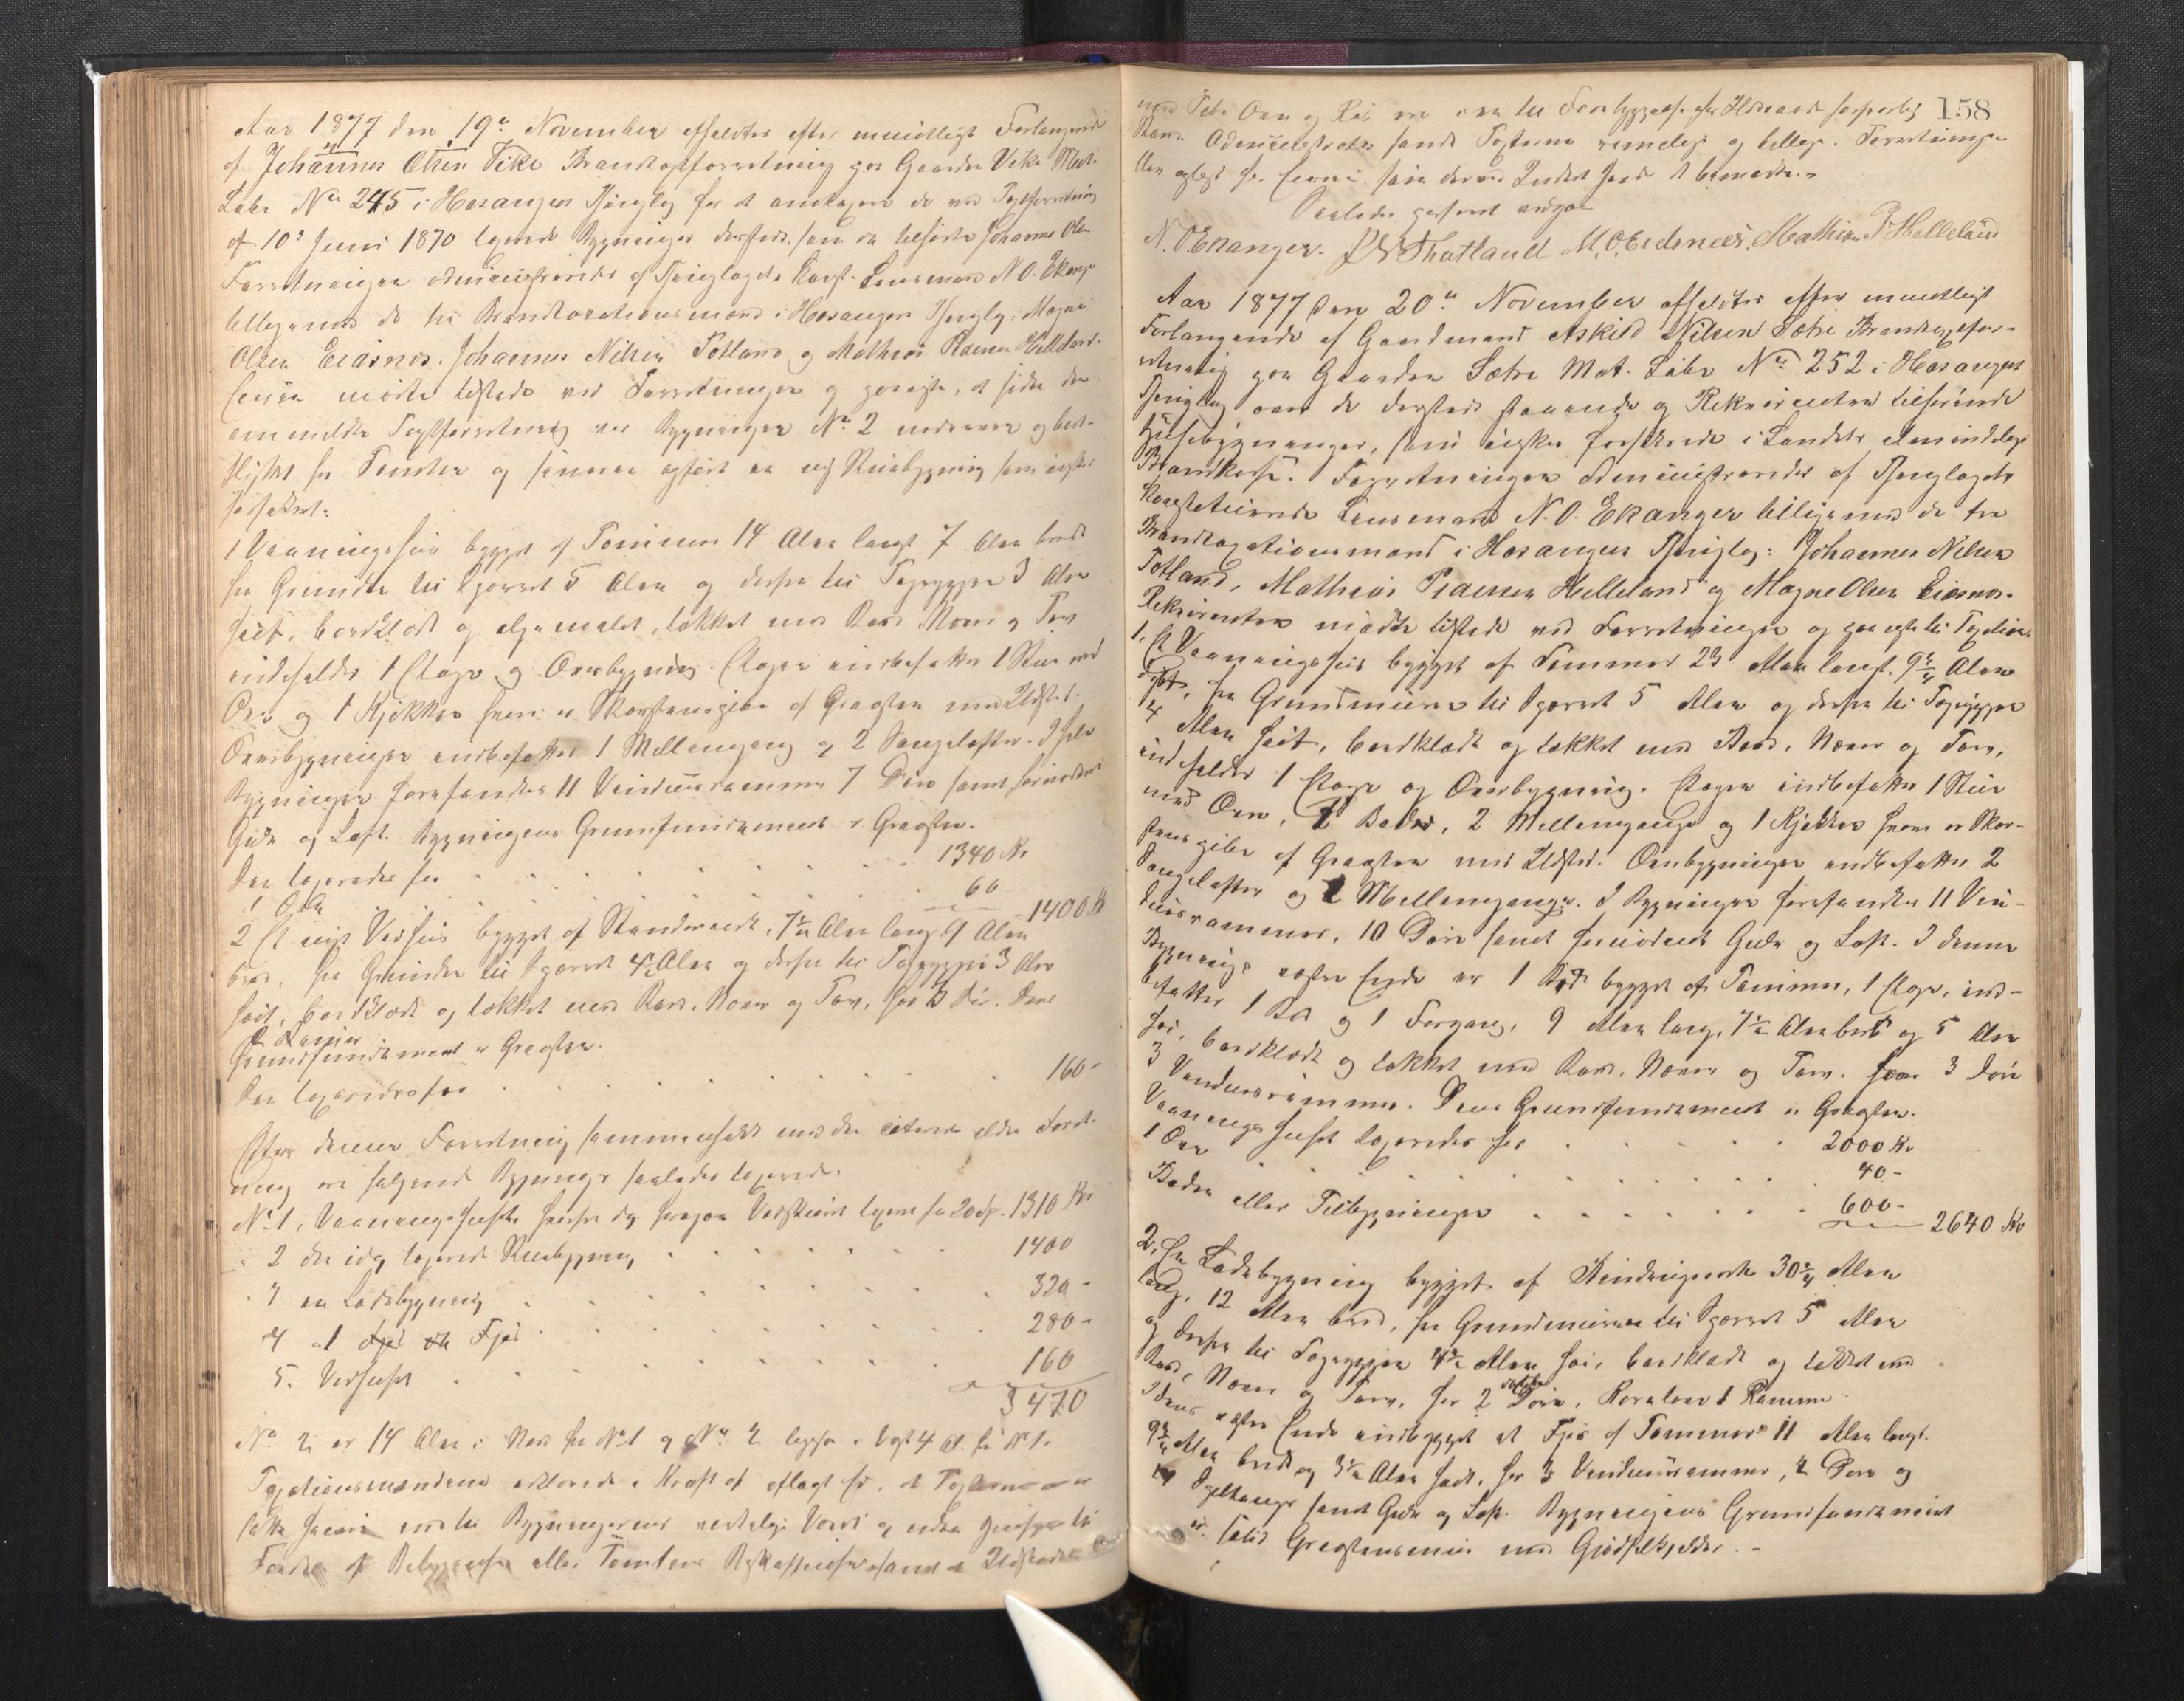 Aar 1877 den 19de November afholdtes efter mundtligt Forlangende
af Johannes Olsen Vike Brandtaxtforretning paa Gaarden Vike Mat.
Labr No 245 i Hosangers Thinglag for at omtaxere de ved Taxtforretning
af 10de Juni 1870 taxerede Bygninger dersteds, som da tilhørte Johannes Olsen
Forretningen administreredes af Thinglagets Konst. Lensmand N. O. Ekanger
tilligemed de tre Brandtaxationsmænd i Hosangers Thinglag: Magne
Olsen Eidsnes, Johannes Nilsen Totland og Mathias Pedersen Helleland.
Eieren mødte tilstede ved Forretningen og paaviste, at siden den
anmeldte Taxtforretning var Bygningen No 2 nedreven og
flyttet fra Tomten og sammen opført en ny Stuebygning som ønskes
forsikret:
1 Vaaningshuus bygget af Tømmer 14 Alen langt 7 Alen bredt
fra Grunden til Sparret 5 Alen og derfra til Tagryggen 3 Alen
høit, bordklædt og oljemalet, tækket med Bord Næver og Torv
indeholder 1 Etage og Overbygning. Etagen indbefatter 1 Stue med
Ovn og 1 Kjøkken hvori er Skorstenspibe af Graasten med Ildsted.
Overbygningen indbefatter 1 Mellemgang og 2 Sengelofter. I hele
Bygningen forefandtes 11 Vinduesrammer 7 Døre samt fornødent
Gulv og Loft. Bygningens Grundfundament er Graasten.
Den taxeredes for . . . 1340 Kr
1 Ovn . . . 60 1400 Kr
2 Et nyt Vedhuus bygget af Standværk, 7½ Alen lang 9 Alen
bred, fra Grunden til Sparret 4½ Alen og derfra til Tagryggen 3 Alen
høit, bordklædt og tækket med Bord, Næver og Torv, har 3 Dør. Dens
2 Rammer
Grundfundament er Graasten.
Den taxeredes for . . . 160 -
Efter denne Forretning sammenholdt med den citerede ældre Forret-
ning ere følgende Bygninger saaledes taxerede.
No 1, Vaaningshuset . . . 1310 Kr
" 2 den idag taxerede Stuebygning . . . 1400
" 3 en Ladebygning . . . 320 -
" 4 " 1 Fjøs . . . 280 -
5. Vedhuset . . . 160
3470
No 2 er 14 Alen i Nord fra No 1 og No 4 ligger i Vest 4 Al. fra No 1.
Taxationsmændene erklærede i Kraft af aflagt Ed, at Taxterne er
satte hverken over til Bygningernes virkelige Værdi og uden Hensyn til
Fordele af Beliggenhed eller Tomtens Beskaffenhed samt at Ildstederne
158
med Pibe Ovn og Rør ere i en til Forebyggelse for Ildsvaade forsvarlig
Stand. Administrator fandt Taxterne rimelige og billige. Forretningen
blev oplæst for Eieren, som derved Intet fandt at bemærke.
Saaledes passeret udgaar
N. O. Ekanger. J N Thotland M. O. Eidsnes. Mathias P Helleland
Aar 1877 den 20de November afholdtes efter mundtligt
Forlangende af Gaardmand Askild Nilsen Sætre Brandtaxtfor-
retning paa Gaarden Sætre Mat. Labr No 252 i Hosangers
Thinglag over de dersteds staaende og Rekvirenten tilhørende
Huusebygninger, som ønskes forsikrede i Landets almindelige
Brandkasse. Forretningen administreredes af Thinglagets
konstituerede Lensmand N. O. Ekanger tilligemed de tre
Brandtaxationsmænd i Hosangers Thinglag: Johannes Nilsen
Totland, Mathias Pedersen Helleland og Magne Olsen Eidsnes.
Rekvirenten mødte tilstede ved Forretningen og paaviste til Taxation
1. Et Vaaningshuus bygget af Tømmer 23 Alen langt, 9¾ Alen
dybt, fra Grundmuren til Sparret 5 Alen og derfra til Tagryggen
4 Alen høit, bordklædt og tækket med Bord, Næver og Torv,
indeholder 1 Etage og Overbygning. Etagen indbefatter 1 Stue
med Ovn, 2 Boder, 2 Mellemgange og 1 Kjøkken hvori er Skor-
stenspibe af Graasten med Ildsted. Overbygningen indbefatter 2
Sengelofter og 2 Mellemgange. I Bygningen forefandtes 11 Vin-
duesrammer, 10 Døre samt fornødent Gulv og Loft. I denne
Bygnings østre Ende er 1 Bod bygget af Tømmer, 1 Etage, ind-
befatter 1 Bod og 1 Forgang, 9 Alen lang, 7½ Alen bred og 5 Alen
høi, bordklædt og tækket med Bord, Næver og Torv. har 3 Døre
3 Vinduesrammer. Dens Grundfundament er Graasten.
Vaaningshuset taxeredes for . . . 2000 Kr
1 Ovn . . . 40 -
Boden eller Tilbygningen . . . 600 - 2640 Kr
2, En Ladebygning bygget af Bindingsværk 30¾ Alen
lang, 12 Alen bred, fra Grundmuren til Sparret 5 Alen
og derfra til Tagryggen 4½ Alen høi, bordklædt og tækket med
Bord, Næver og Torv, har 2 dobbelte Døre, Kornlaave 1 Ramme
I dens østre Ende indbygget et Fjøs af Tømmer 11 Alen langt.
9¾ Alen bredt og 3½ Alen høit, har 3 Vinduesrammer, 2 Døre og
samt Gulv og Loft. Bygningens Grundfundament
er solid Graastensmuur med Gjødselkjelder.